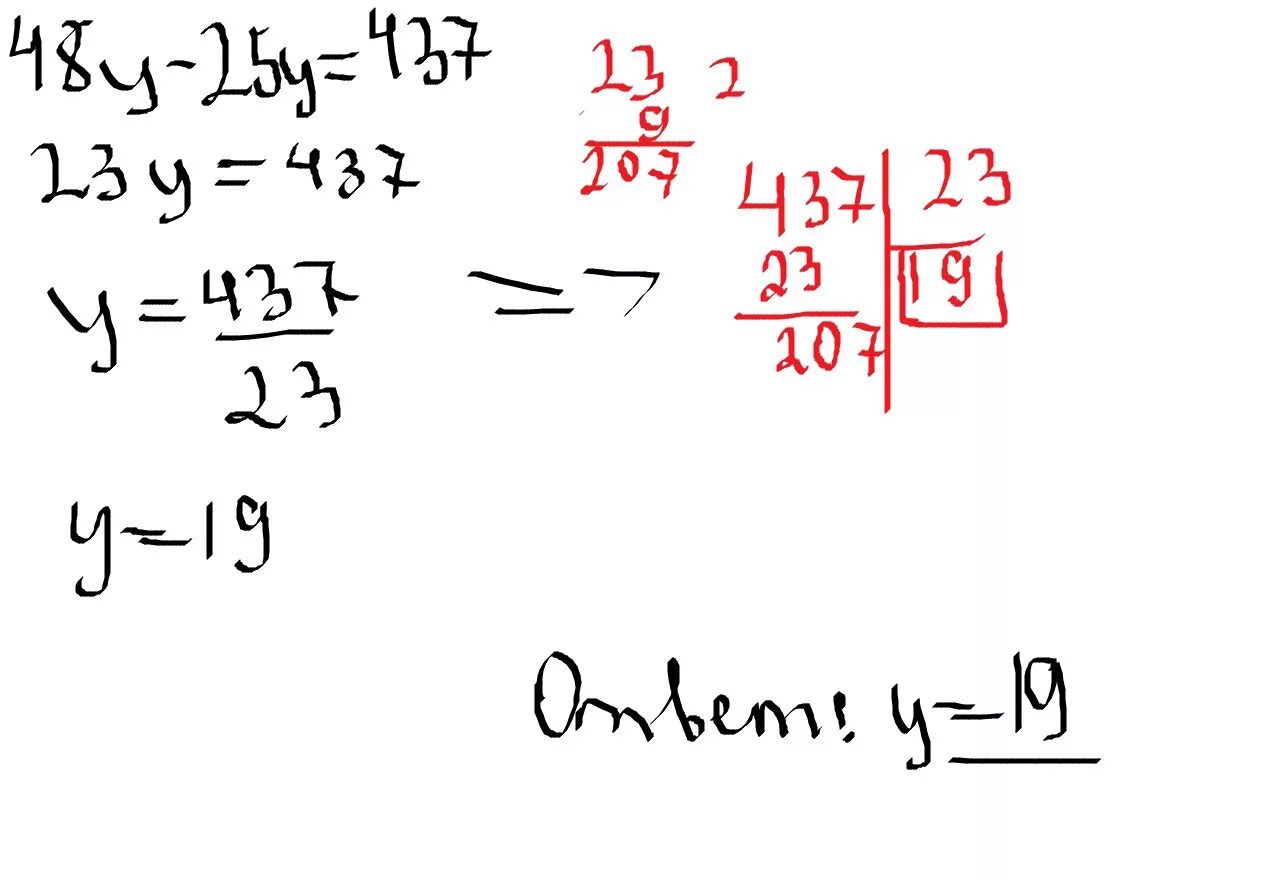 48y-25y=437
23y=437
y=437
23
=>
y=19
23 2
9
207
437 23
23 19
207
Ответ: y=19